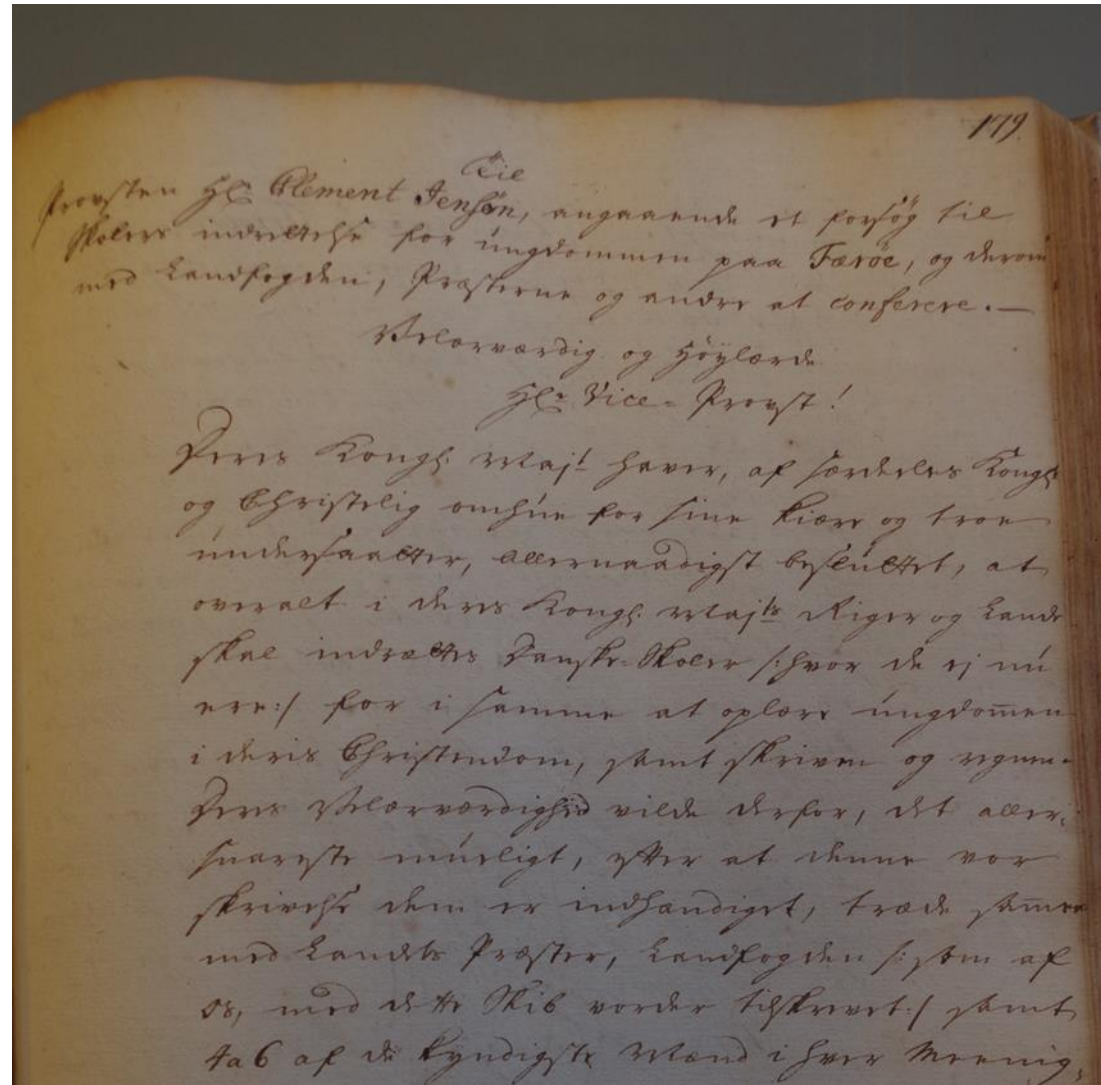 179.
Til
Provsten Hr. Clement Jensøn, angaaende et forsøg til
Skolers indrettelse for ungdommen paa Færöe, og derom
med Landfogden, Præsterne og andre at conferere.—
Velærværdig og Høylærde
Hr. Vice-Provst!
Deres Kongl. Mayt. haver, af særdeeles Kongl.
og Christelig omhue for sine kiære og troe
undersaatter, allernaadigst besluttet, at
overalt i deres Kongl. Mayts. Riger og Lande
skal indrættes Danske-Skoler /:hvor de ej nu
ere:/ for i samme at oplære ungdom̅en
i deris Christendom, samt skriven og regnen.
Deres Velærværdighed vilde derfor, det aller-
snareste mueligt, efter at denne vor
skrivelse dem er indhændiget, træde sam̅en
med Landets Præster, Landfogden /:som af
os, med dette Skib vorder tilskrevet:/ samt
4 a 6 af de kyndigste Mænd i hver Meenig-